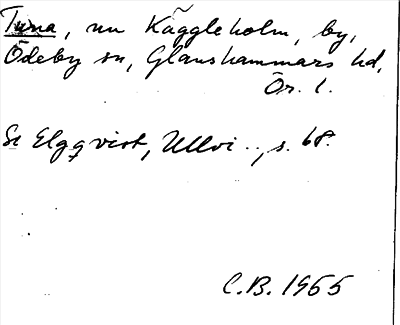 Tuna, nu Käggleholm, by,
Ödeby sn, Glanshammars hd,
Ör. l.
Se Elgqvist, Ullvi .., s. 68.
C.B. 1965